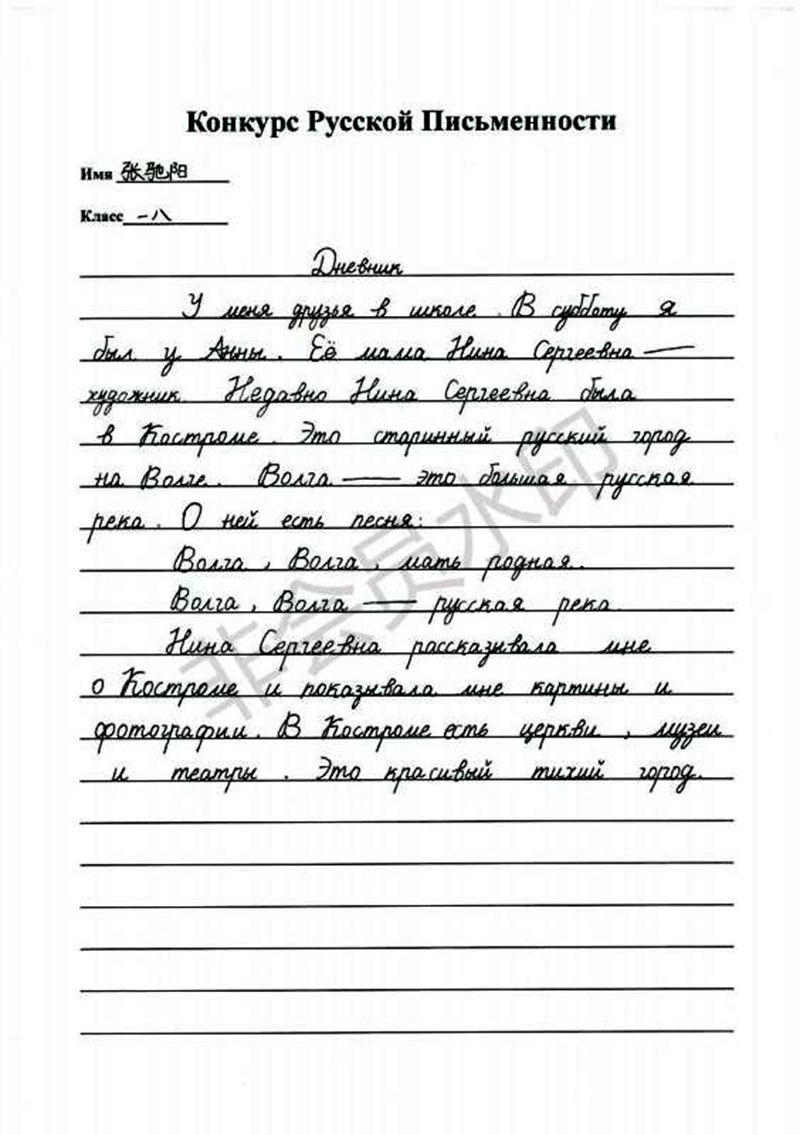 Конкурс Русской Письменности
Имя 张驰阳
Класс 一八
Дневник
У меня друзья в школе. В субботу я
был у Анны. Её мама Нина Сергеевна —
художник. Недавно Нина Сергеевна была
в Костроме. Это старинный русский город
на Волге. Волга — это большая русская
река. О ней есть песня:
Волга, Волга, мать родная.
Волга, Волга — русская река.
Нина Сергеевна рассказывала мне
о Костроме и показывала мне картины и
фотографии. В Костроме есть церкви, музеи
и театры. Это красивый тихий город.
非会员水印